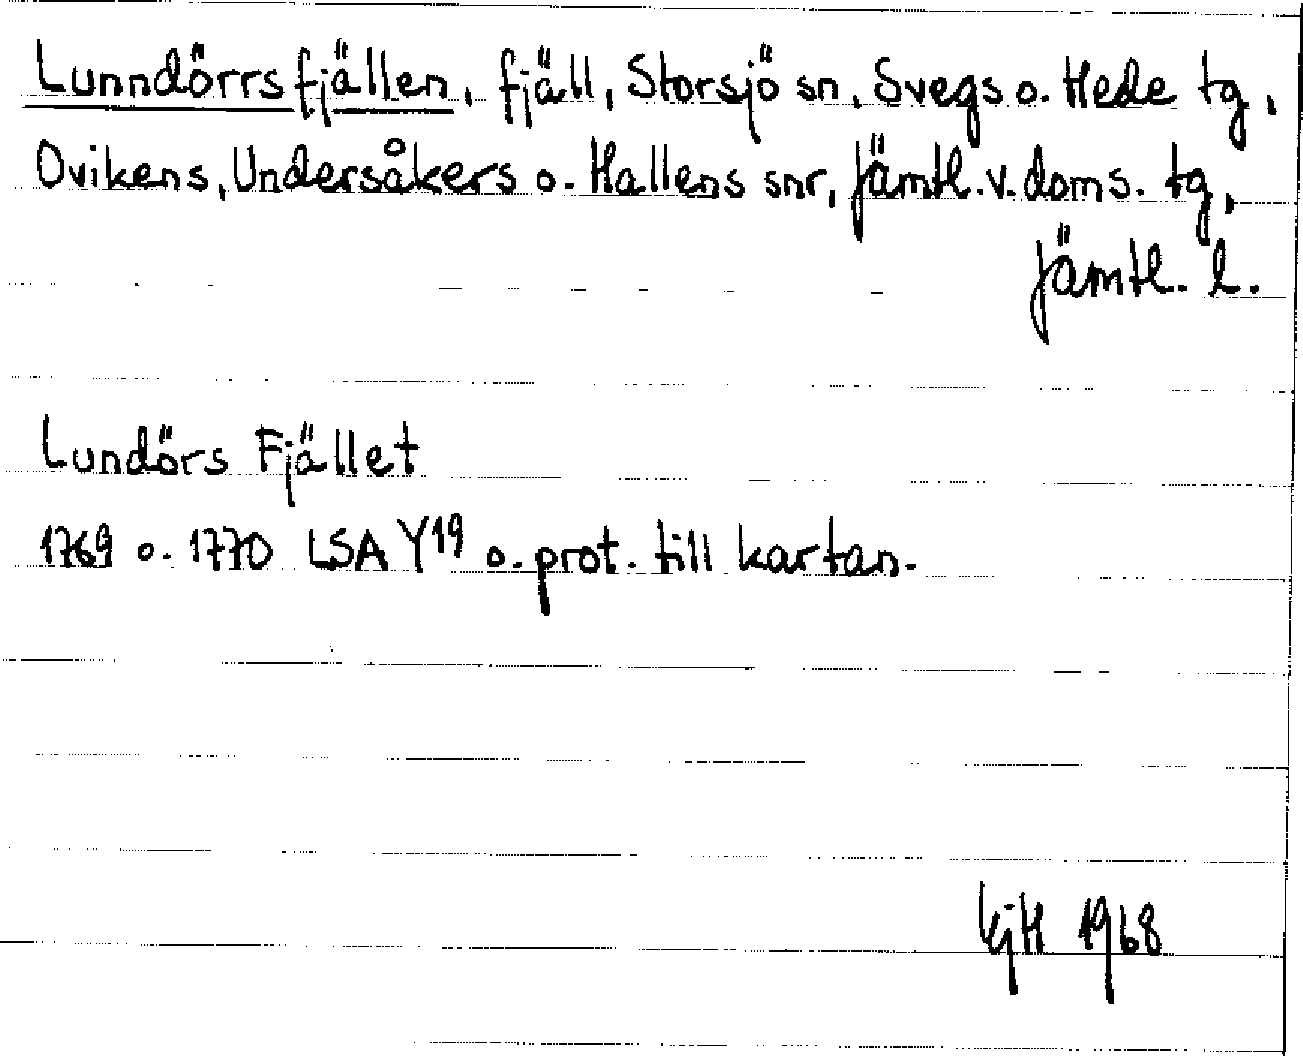 Lunndörrsfjällen, fjäll, Storsjö sn, Svegs o. Hede tg,
Ovikens, Undersåkers o. Hallens snr, Jämtl. v. doms. tg,
Jämtl. l.
Lundörs Fjället
1769 o. 1770 LSA Y19 o. prot. till kartan.
KjH 1968